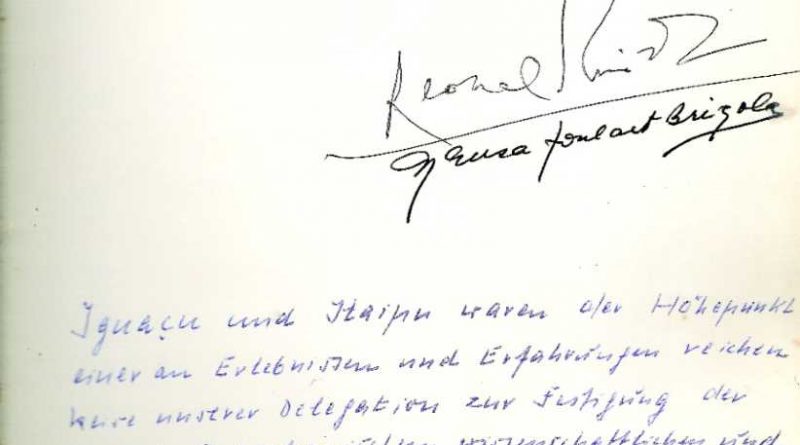 Neusa Goulart Brizola
Iguaçu und Itaipu waren der Höhepunkt
einer an Erlebnissen und Erfahrungen reichen
unsrer Delegation zur Festigung der
wissenschaftlichen und